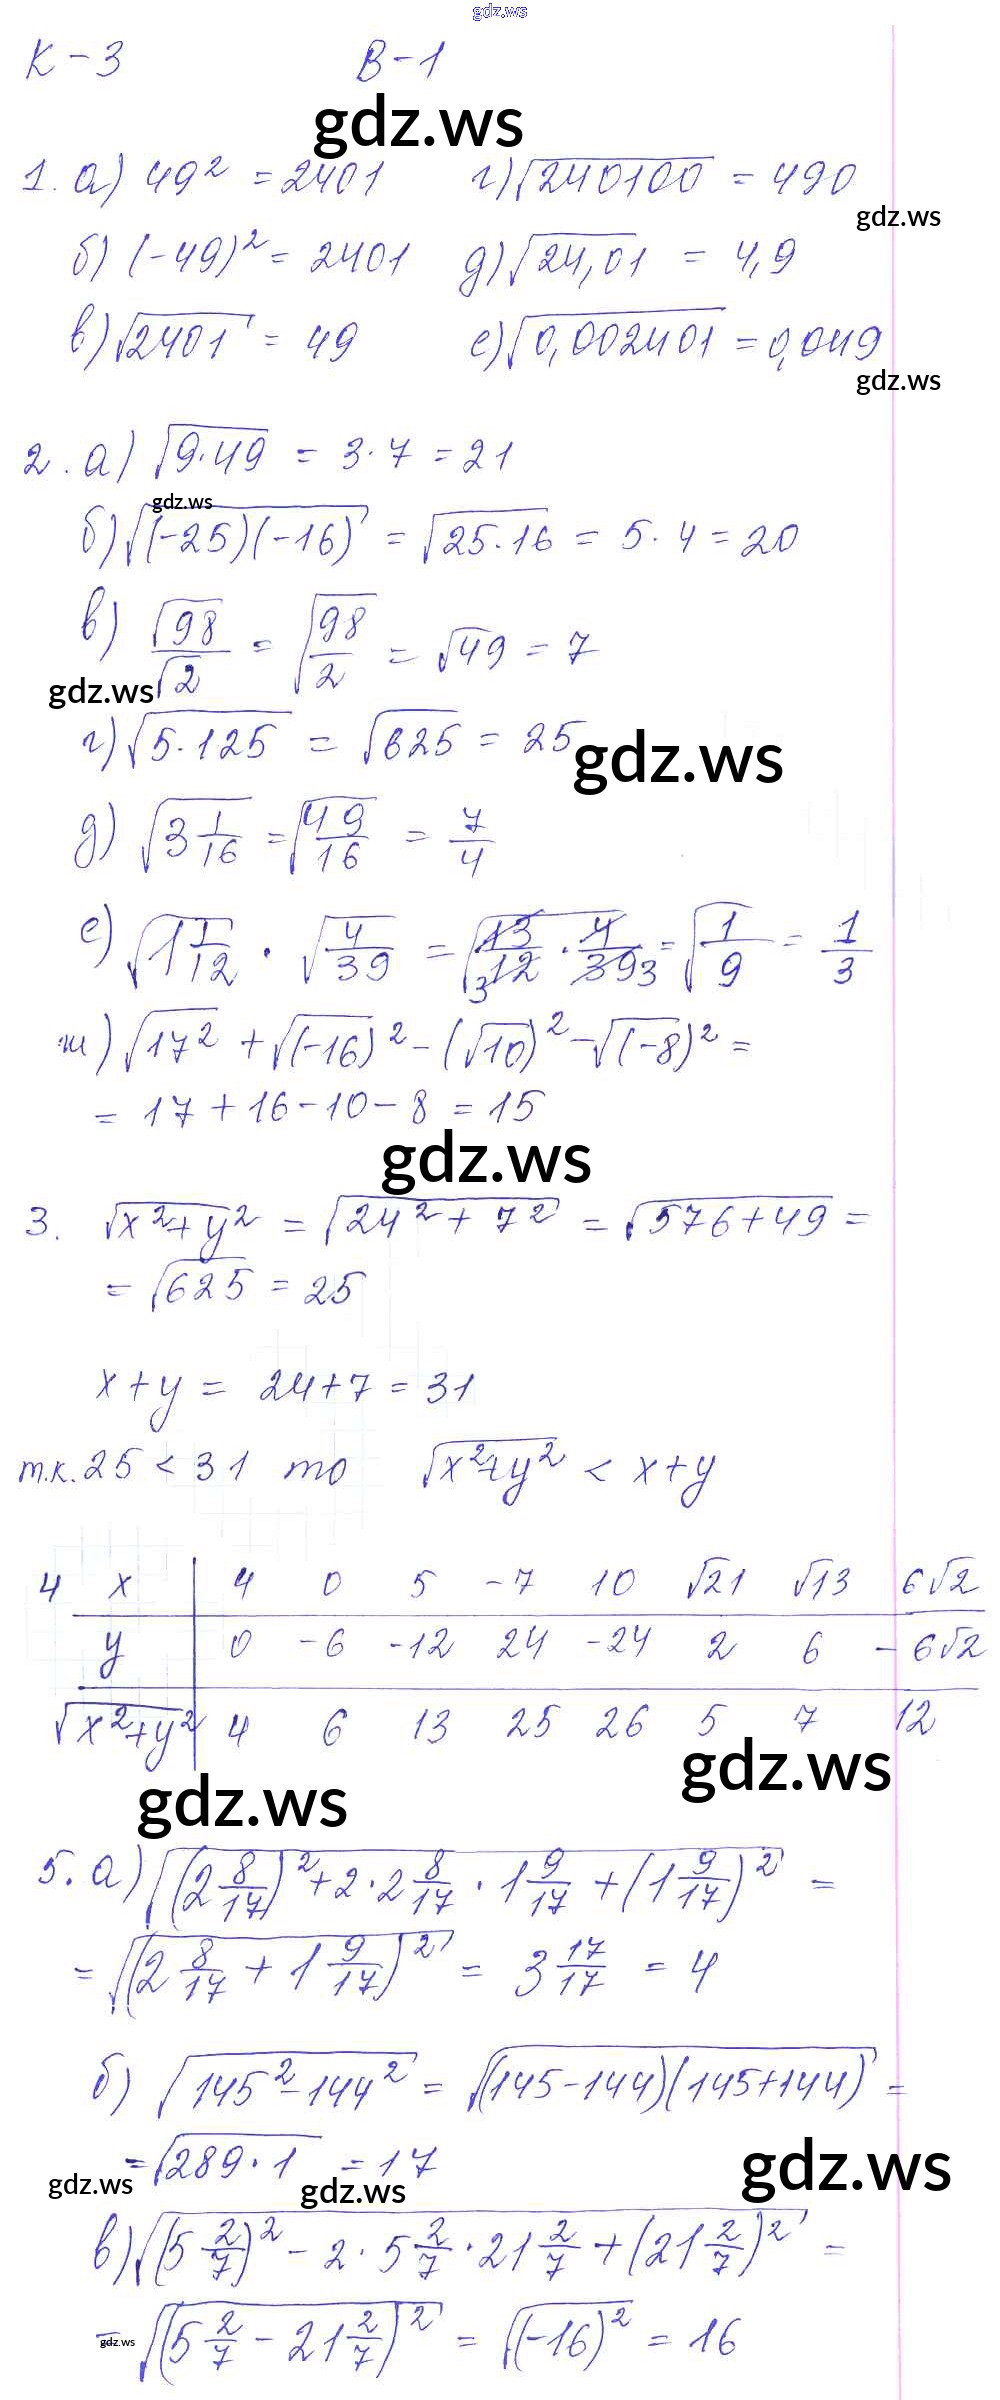 gdz.ws
К-3 В-1
gdz.ws
1. а) 49² = 2401 г) √240100 = 490
gdz.ws
б) (-49)² = 2401 д) √24,01 = 4,9
в) √2401 = 49 е) √0,002401 = 0,049
gdz.ws
2. а) √9·49 = 3·7 = 21
gdz.ws
б) √(-25)(-16) = √25·16 = 5·4 = 20
в) √98/√2 = √98/2 = √49 = 7
gdz.ws
г) √5·125 = √625 = 25
gdz.ws
д) √3 1/16 = √49/16 = 7/4
е) √1 1/12 · √4/39 = √13/12 · 4/39 = √1/9 = 1/3
3 3
ж) √17² + √(-16)² - (√10)² - √(-8)² =
= 17 + 16 - 10 - 8 = 15
gdz.ws
3. √x²+y² = √24² + 7² = √576+49 =
= √625 = 25
x+y = 24+7 = 31
т.к. 25 < 31 то √x²+y² < x+y
4 x 4 0 5 -7 10 √21 √13 6√2
y 0 -6 -12 24 -24 2 6 -6√2
√x²+y² 4 6 13 25 26 5 7 12
gdz.ws
gdz.ws
5. а) √(2 8/17)² + 2·2 8/17 · 1 9/17 + (1 9/17)² =
= √(2 8/17 + 1 9/17)² = 3 17/17 = 4
б) √145²-144² = √(145-144)(145+144) =
= √289·1 = 17
gdz.ws
gdz.ws
gdz.ws
в) √(5 2/7)² - 2·5 2/7 · 21 2/7 + (21 2/7)² =
= √(5 2/7 - 21 2/7)² = √(-16)² = 16
gdz.ws